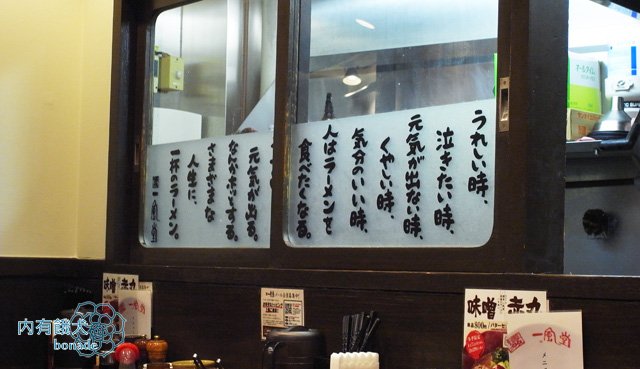 うれしい時、
泣きたい時、
元気が出ない時、
くやしい時、
気分のいい時、
人はラーメンを
食べたくなる。
元気が出る。
なんかホッとする。
さまざまな
人生に、
一杯のラーメン。
一風堂
味噌赤丸
味噌赤丸
800円
一風堂
内有餓犬
bonade